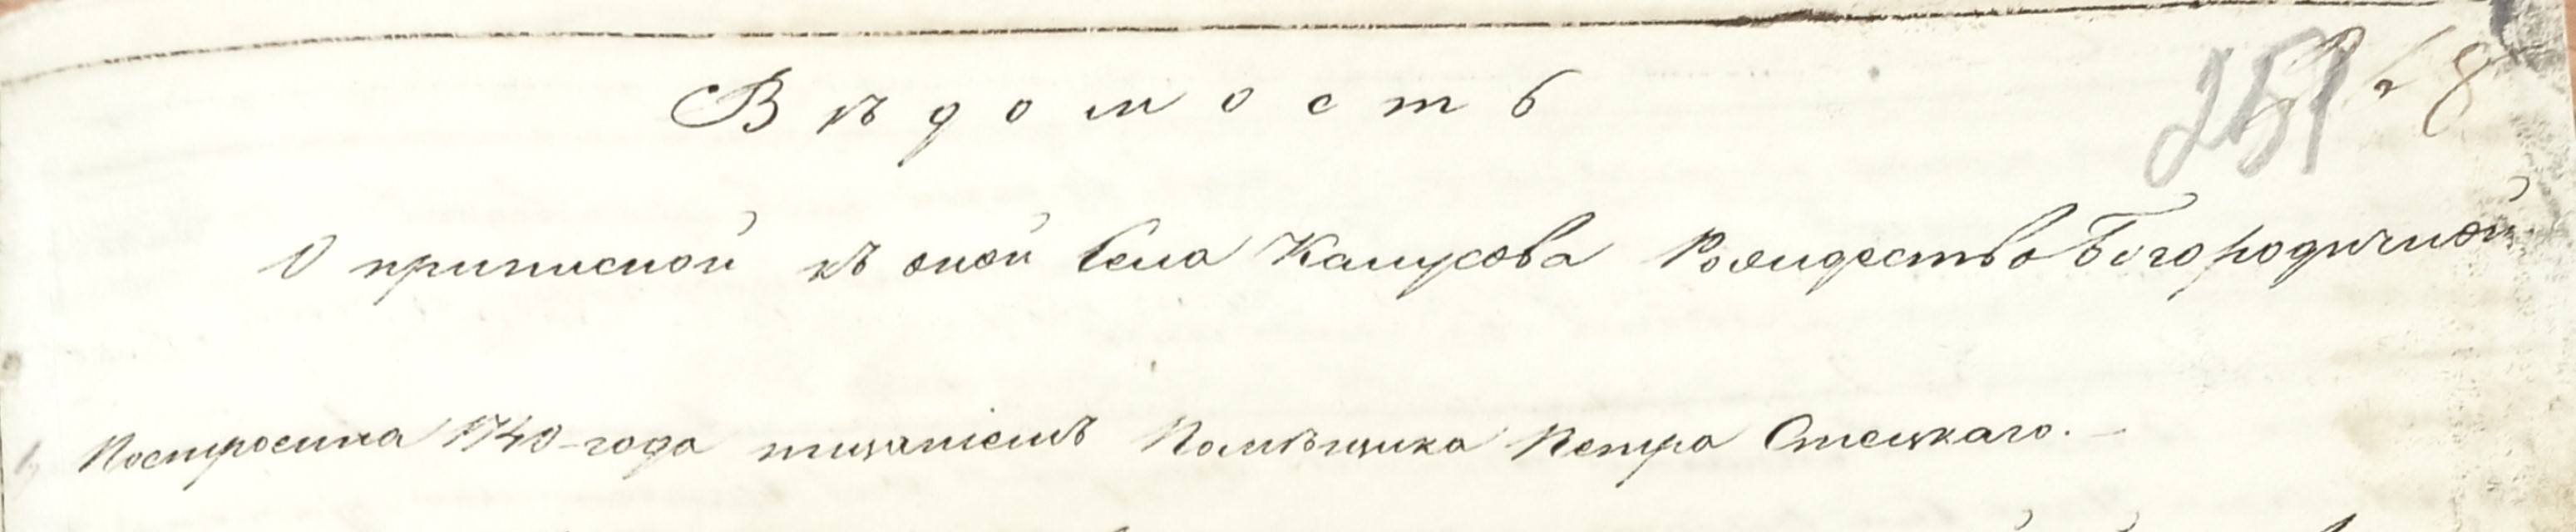 Вѣдомость
251
О приписной къ оной Села Канусова РождествоБогородичной
1, Построена 1740-года тщаніемъ Помѣщика Петра Стецкаго.